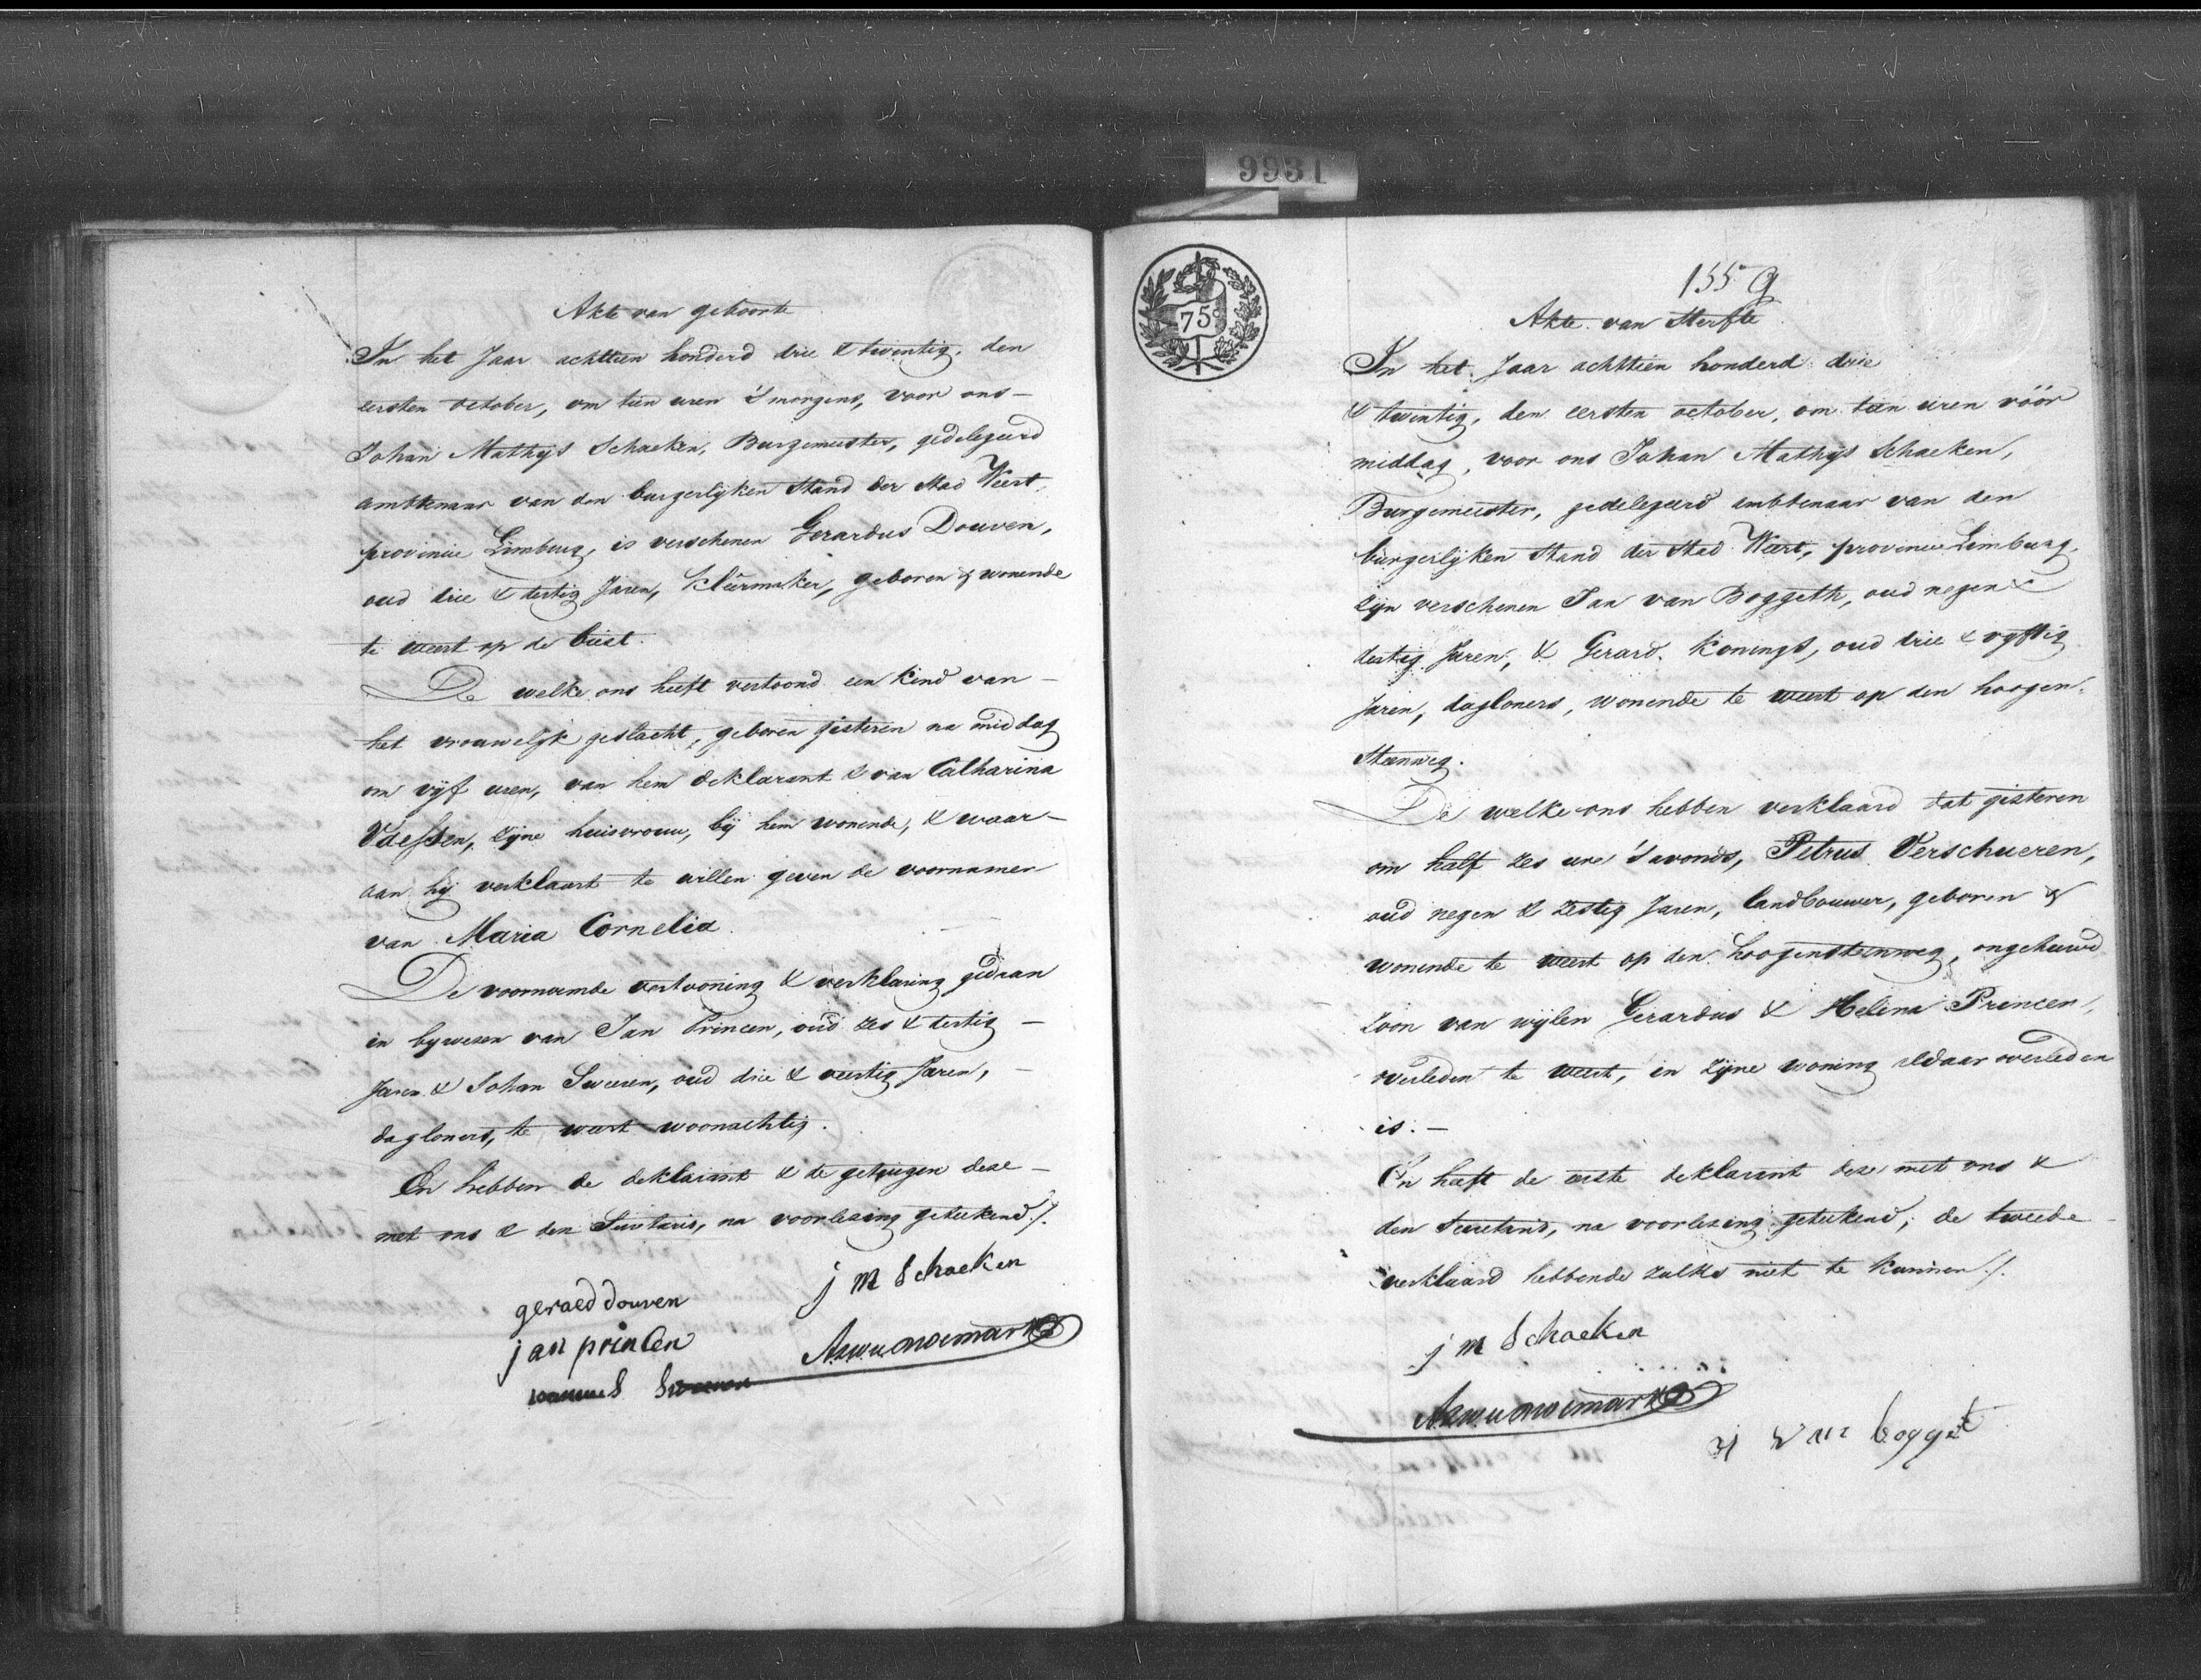 9931
Akte van geboorte
In het Jaar achttien honderd drie & twintig, den
eersten october, om tien uren 's morgens, voor ons -
Johan Mathijs Schaeken, Burgemeester, gedelegeerd
ambtenaar van den burgerlijken Stand der Stad Weert,
provincie Limburg, is verschenen Gerardus Douven,
oud drie & dertig Jaren, kleêrmaker, geboren & wonende
te weert op de biest.
De welke ons heeft vertoond een kind van -
het vrouwelijk geslacht, geboren gisteren na middag
om vijf uren, van hem deklarant & van Catharina
zijne huisvrouw, bij hem wonende, & waar-
aan hij verklaart te willen geven de voornamen
van Maria Cornelia.
De voornoemde vertooning & verklaring gedaan
in bijwezen van Jan Princen, oud zes & dertig -
Jaren & Johan Sweeren, oud drie & veertig Jaren, -
dagloners, te weert woonachtig.
En hebben de deklarant & de getuigen deze -
met ons & den Secretaris, na voorlezing geteekend ./.
geraed douven
j M Schaeken
jan princen
75
155 g
Akte van Sterfte
In het Jaar achttien honderd drie
& twintig, den eersten october, om tien uren vóór
middag, voor ons Johan Mathijs Schaeken,
Burgemeester, gedelegeerd ambtenaar van den
burgerlijken Stand der Stad Weert, provincie Limburg,
zijn verschenen Jan van Boggeth, oud negen &
dertig Jaren, & Gerard Konings, oud drie & vijftig
Jaren, dagloners, wonende te weert op den hoogen-
Steenweg.
De welke ons hebben verklaard dat gisteren
om half zes ure 's avonds, Petrus Verschueren,
oud negen & zestig Jaren, landbouwer, geboren &
wonende te weert op den hoogensteenweg, ongehuwd
zoon van wijlen Gerardus & Helena Princen,
overleden te weert, in zijne woning aldaar overleden
is. -
En heeft de eerste deklarant deze met ons &
den Secretaris, na voorlezing geteekend, de tweede -
verklaard hebbende zulks niet te kunnen ./.
j M Schaeken
J Van bogget